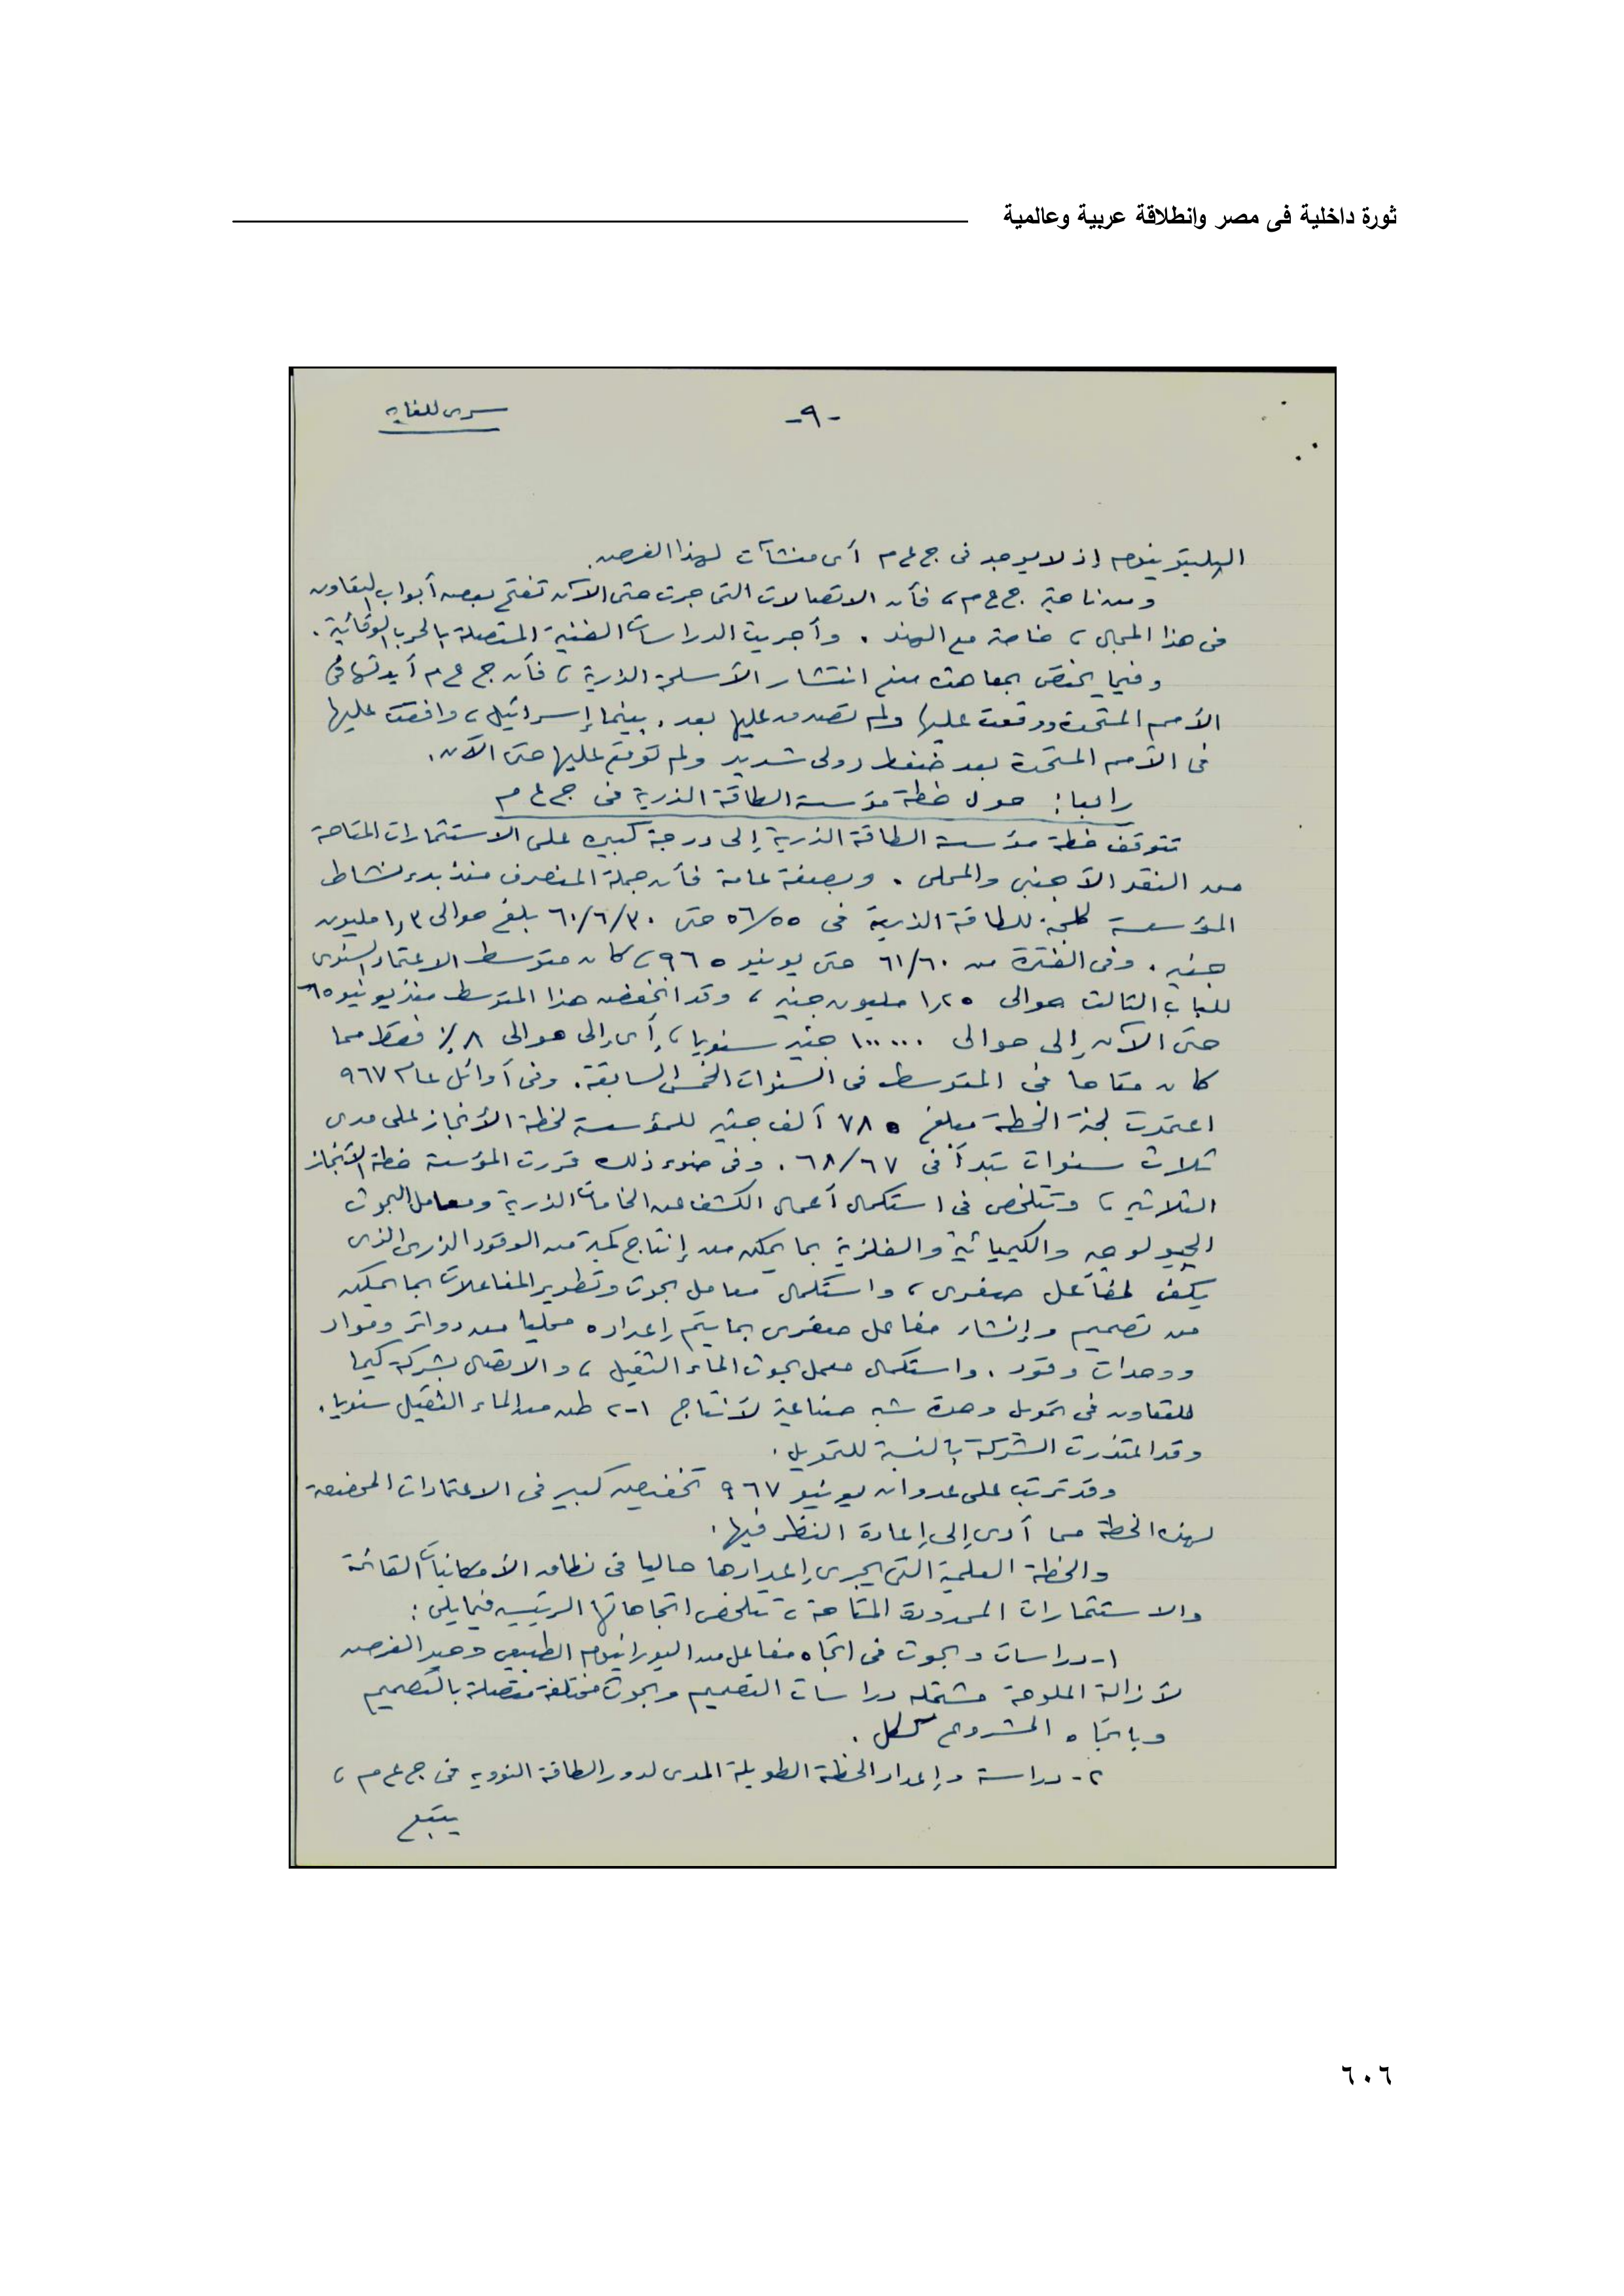 ثورة داخلية فى مصر وانطلاقة عربية وعالمية
-٩-
سرى للغاية
البليتونيوم إذ لا يوجد فى ج ع م أى منشآت لهذا الغرض.
ومن ناحية ج ع م، فأن الاتصالات التى جرت حتى الآن تفتح بعض أبواب التعاون
فى هذا المجال، خاصة مع الهند. وأجريت الدراسات الفنية المتصلة بالحرب الوقائية.
وفيما يختص بمعاهدة منع انتشار الأسلحة الذرية، فأن ج ع م أيدتها فى
الأمم المتحدة ووقعت عليها ولم تصدق عليها بعد. بينما إسرائيل، وافقت عليها
فى الأمم المتحدة بعد ضغط دولى شديد ولم توقع عليها حتى الآن.
رابعا: حول خطة مؤسسة الطاقة الذرية فى ج ع م
تتوقف خطة مؤسسة الطاقة الذرية إلى درجة كبيرة على الاستثمارات المتاحة
من النقد الأجنبى والمحلى. وبصفة عامة فأن جملة المنصرف منذ بدء نشاط
المؤسسة كلجنة للطاقة الذرية فى ٥٦/٥٥ حتى ٦٠/٦/٣٠ بلغ حوالى ١٫٣ مليون
جنيه. وفى الفترة من ٦١/٦٠ حتى يونيو ٩٦٥، كان متوسط الاعتماد السنوى
للباب الثالث حوالى ١٫٢٥ مليون جنيه، وقد انخفض هذا المتوسط منذ يونيو ٦٥
حتى الآن إلى حوالى ١٠٠٠٠٠ جنيه سنويا، أى إلى حوالى ٨٪ فقط مما
كان متاحا فى المتوسط فى السنوات الخمس السابقة. وفى أوائل عام ٩٦٧
اعتمدت لجنة الخطة مبلغ ٧٨٥ ألف جنيه للمؤسسة لخطة الأنجاز على مدى
ثلاث سنوات تبدأ فى ٦٨/٦٧. وفى ضوء ذلك قررت المؤسسة خطة الأنجاز
الثلاثية، وتتلخص فى استكمال أعمال الكشف عن الخامات الذرية ومعامل البحوث
الجيولوجية والكيميائية والفلزية بما يمكن من إنتاج كمية من الوقود الذرى الذى
يكفى لمفاعل صفرى، واستكمال معامل بحوث وتطوير المفاعلات بما يمكن
من تصميم وإنشاء مفاعل صفرى بما يتم إعداده محليا من دوائر ومواد
ووحدات وقود. واستكمال معمل بحوث الماء الثقيل، والاتصال بشركة كيما
للتعاون فى تمويل وحدة شبه صناعية لأنتاج ١-٢ طن من الماء الثقيل سنويا.
وقد اعتذرت الشركة بالنسبة للتمويل.
وقد ترتب على عدوان يونيو ٩٦٧ تخفيض كبير فى الاعتمادات المخصصة
لهذه الخطة مما أدى إلى إعادة النظر فيها.
والخطة العلمية التى يجرى إعدادها حاليا فى نطاق الأمكانيات القائمة
والاستثمارات المحدودة المتاحة، تتلخص اتجاهاتها الرئيسية فيما يلى:
١- دراسات وبحوث فى اتجاه مفاعل من اليورانيوم الطبيعى وحيد الغرض
لأزالة الملوحة مشتملة دراسات التصميم وبحوث مختلفة متصلة بالتصميم
وباتجاه المشروع ككل.
٢- دراسة وإعداد الخطة الطويلة المدى لدور الطاقة النووية فى ج ع م،
يتبع
٦٠٦